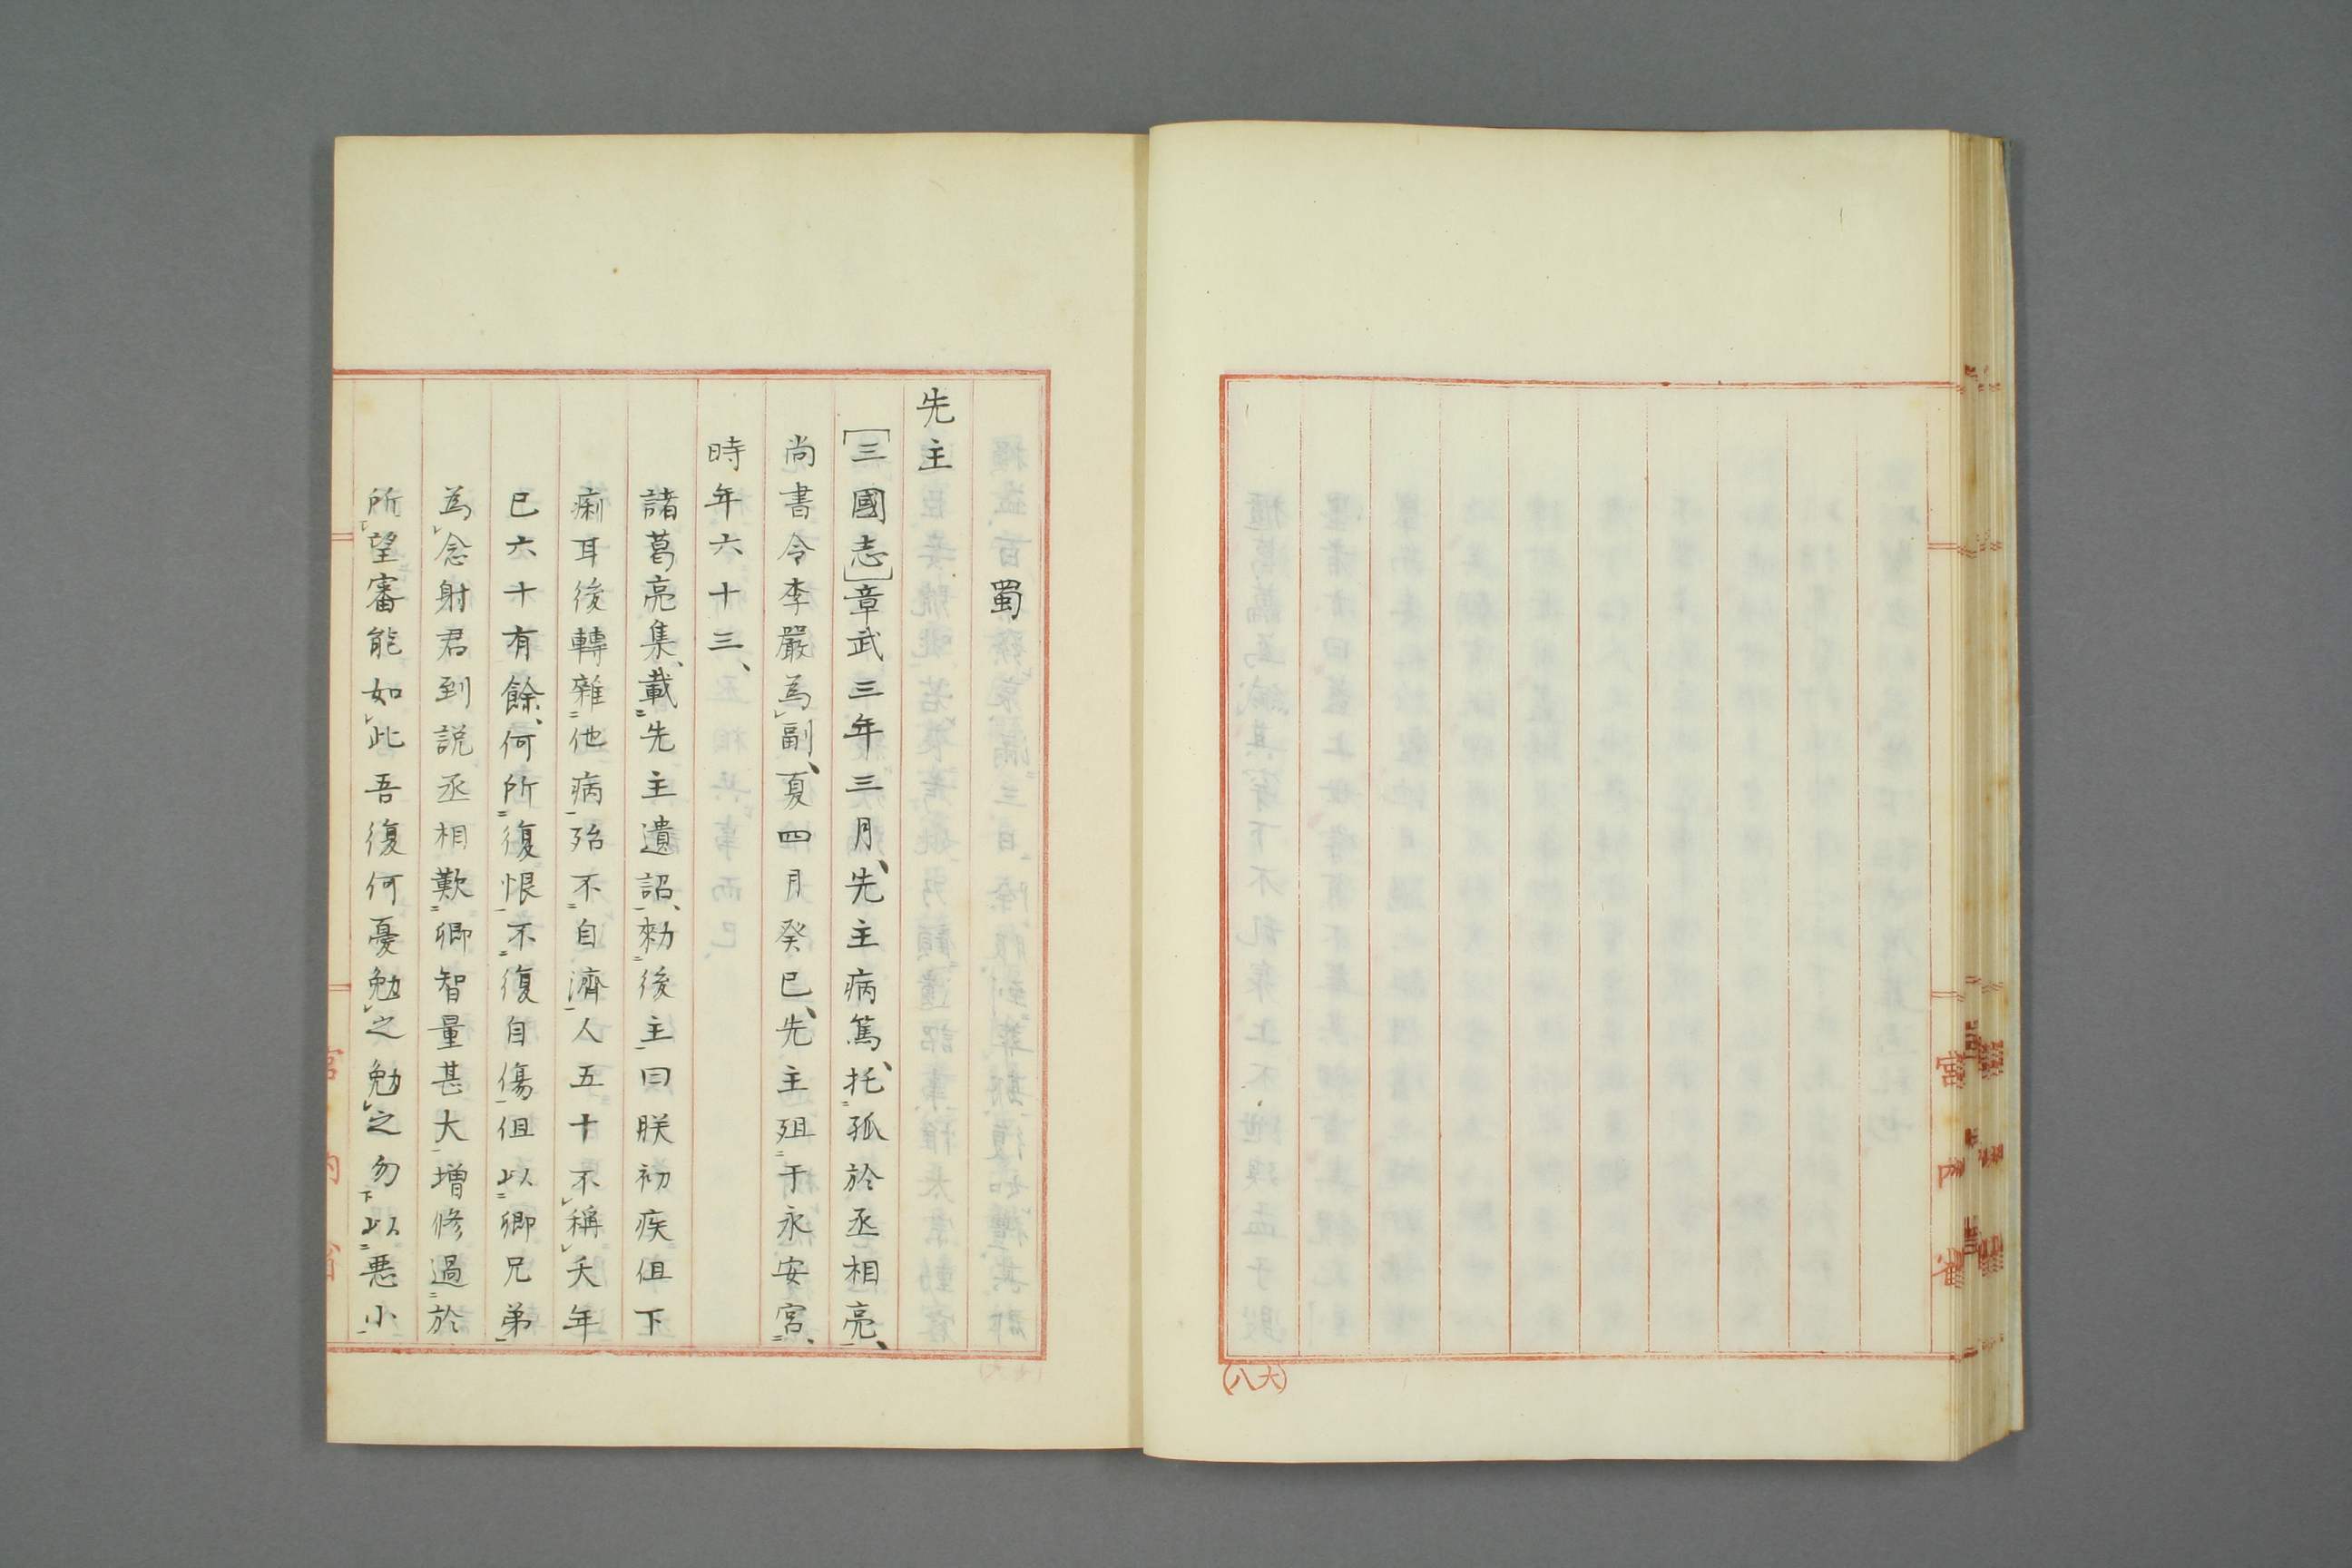 宮内省
(六八)
蜀
先主
[三國志]章武三年三月、先主病篤、托孤於丞相亮、
尚書令李嚴為副、夏四月癸巳、先主殂于永安宮、
時年六十三、
諸葛亮集、載先主遺詔、勑後主曰朕初疾伹下
痢耳後轉雜他病殆不自濟人五十不稱夭年
已六十有餘、何所復恨不復自傷伹以卿兄弟
為念射君到説丞相歎卿智量甚大増修過於
所望審能如此吾復何憂勉之勉之勿以悪小